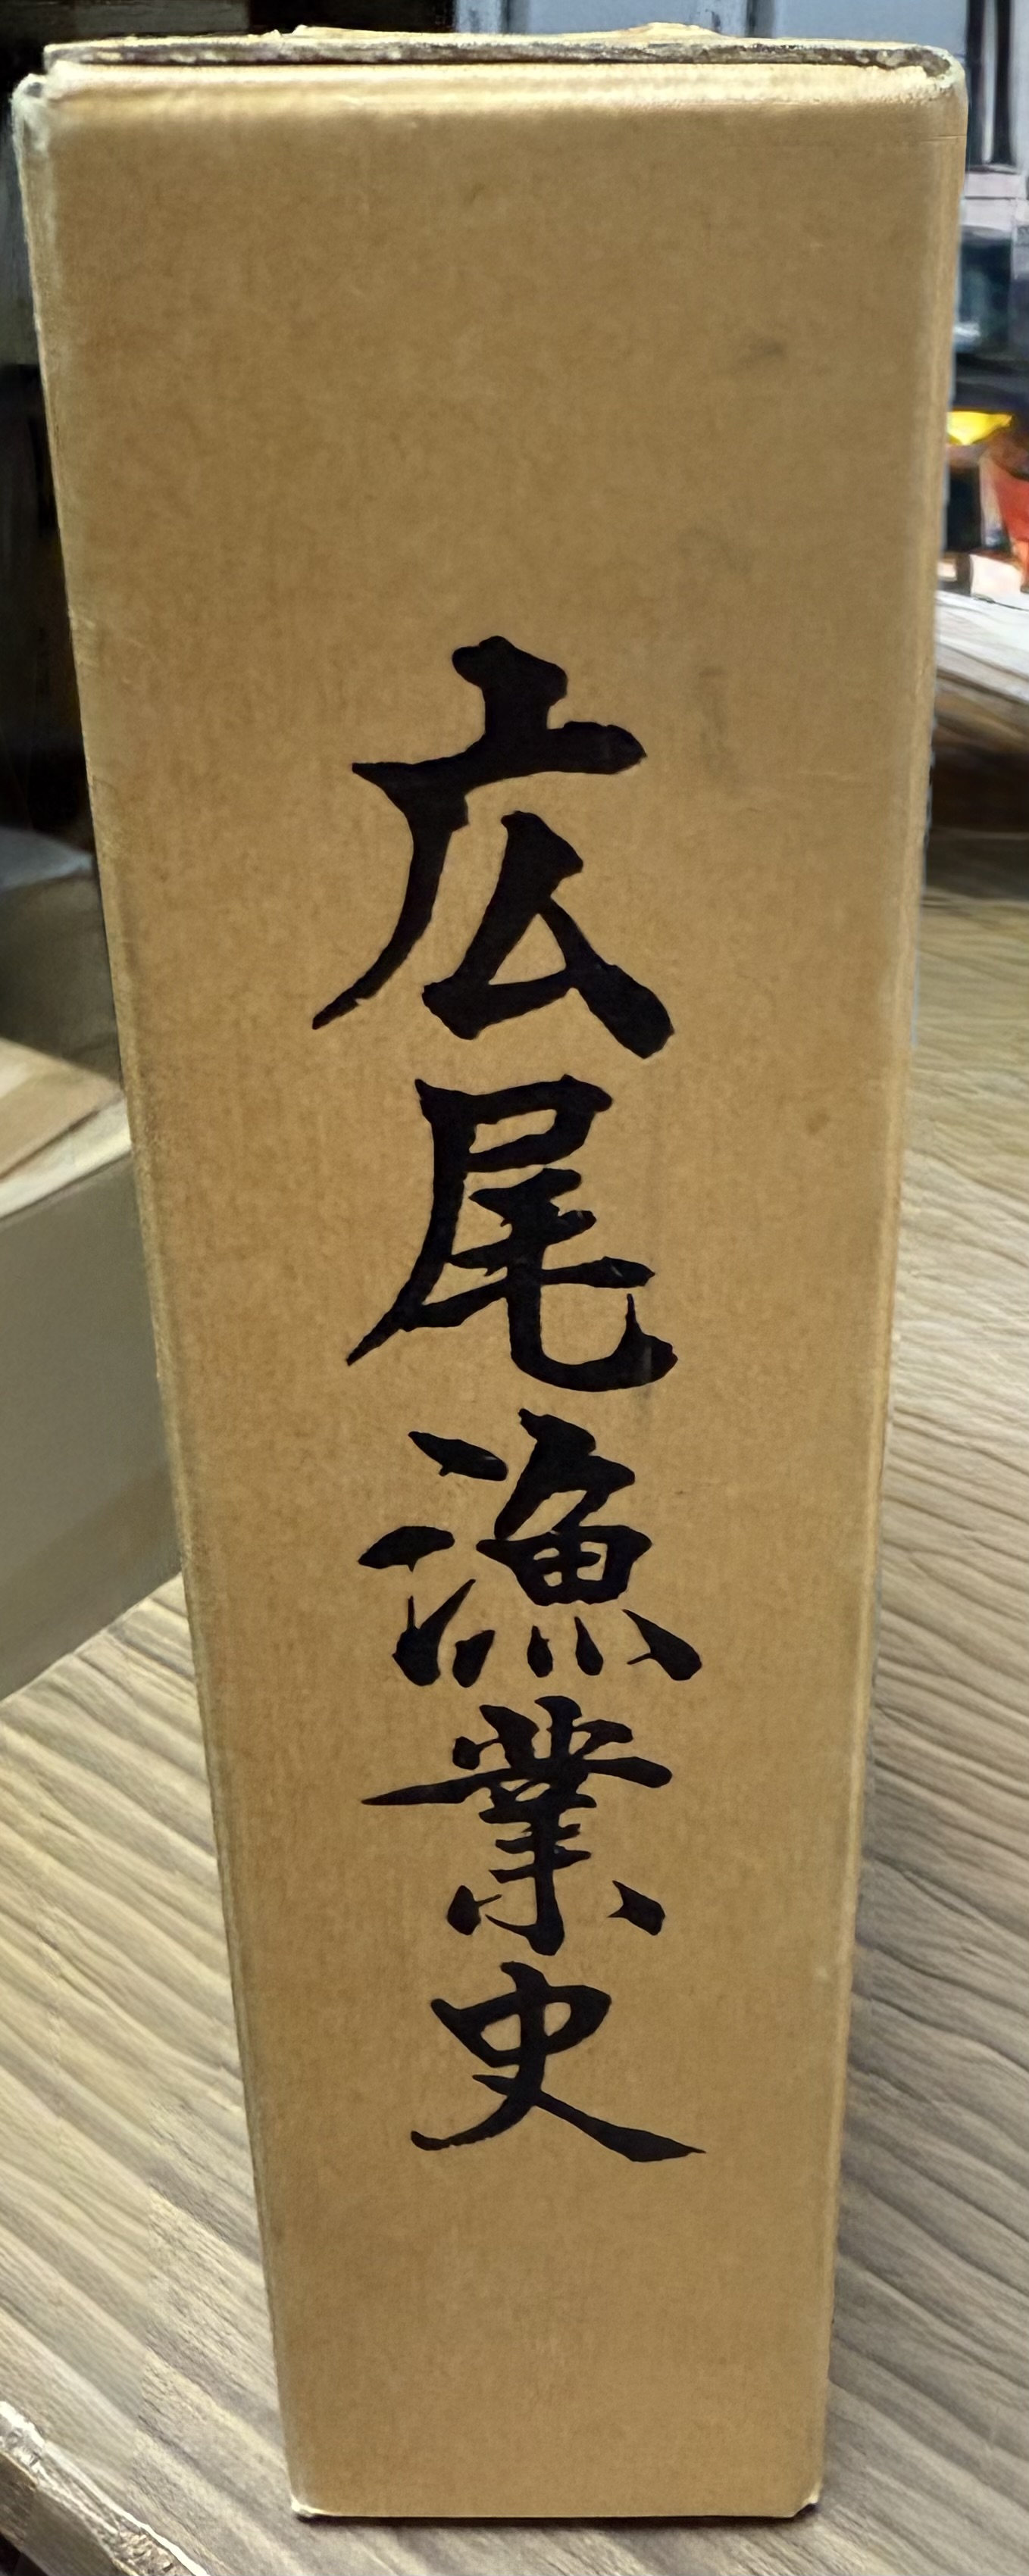 広尾漁業史